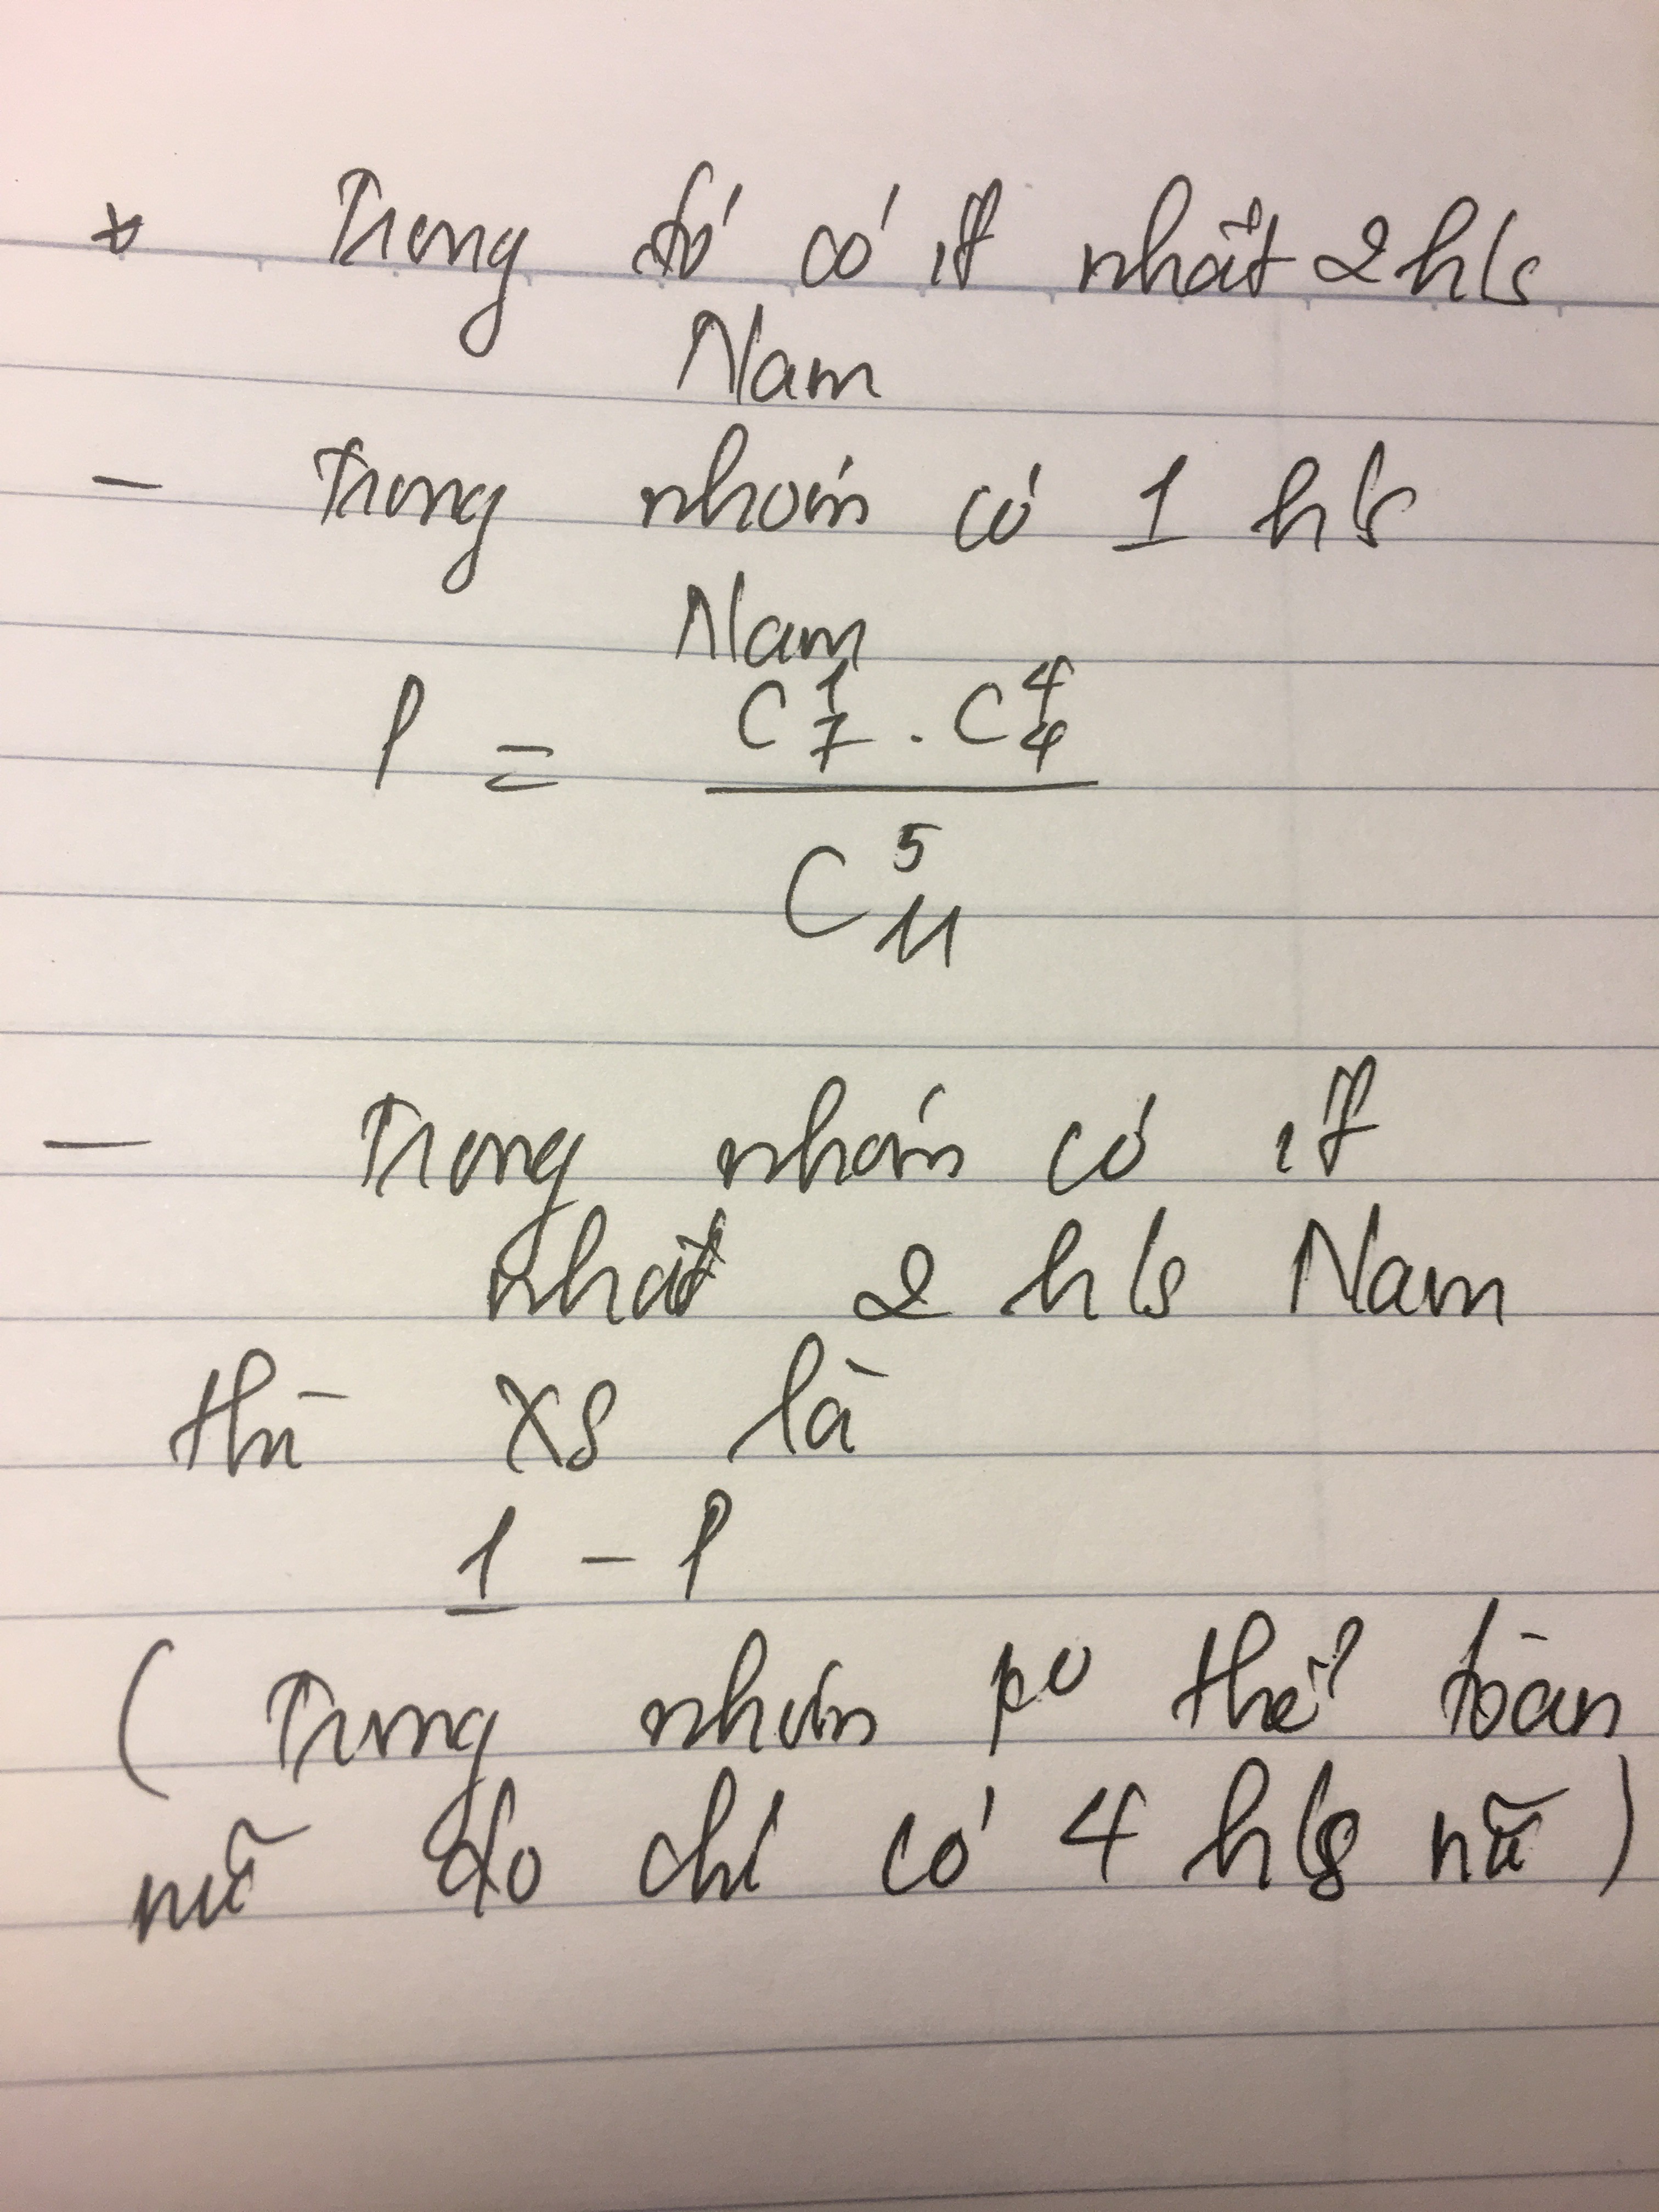 * Trong đó có ít nhất 2 h/s
Nam
- Trong nhóm có 1 h/s
Nam
P = C⁠¹₇ . C⁴₄
C⁵₁₁
- Trong nhóm có ít
nhất 2 h/s Nam
thì XS là
1 - P
( Trong nhóm ko thể toàn
nữ do chỉ có 4 h/s nữ )